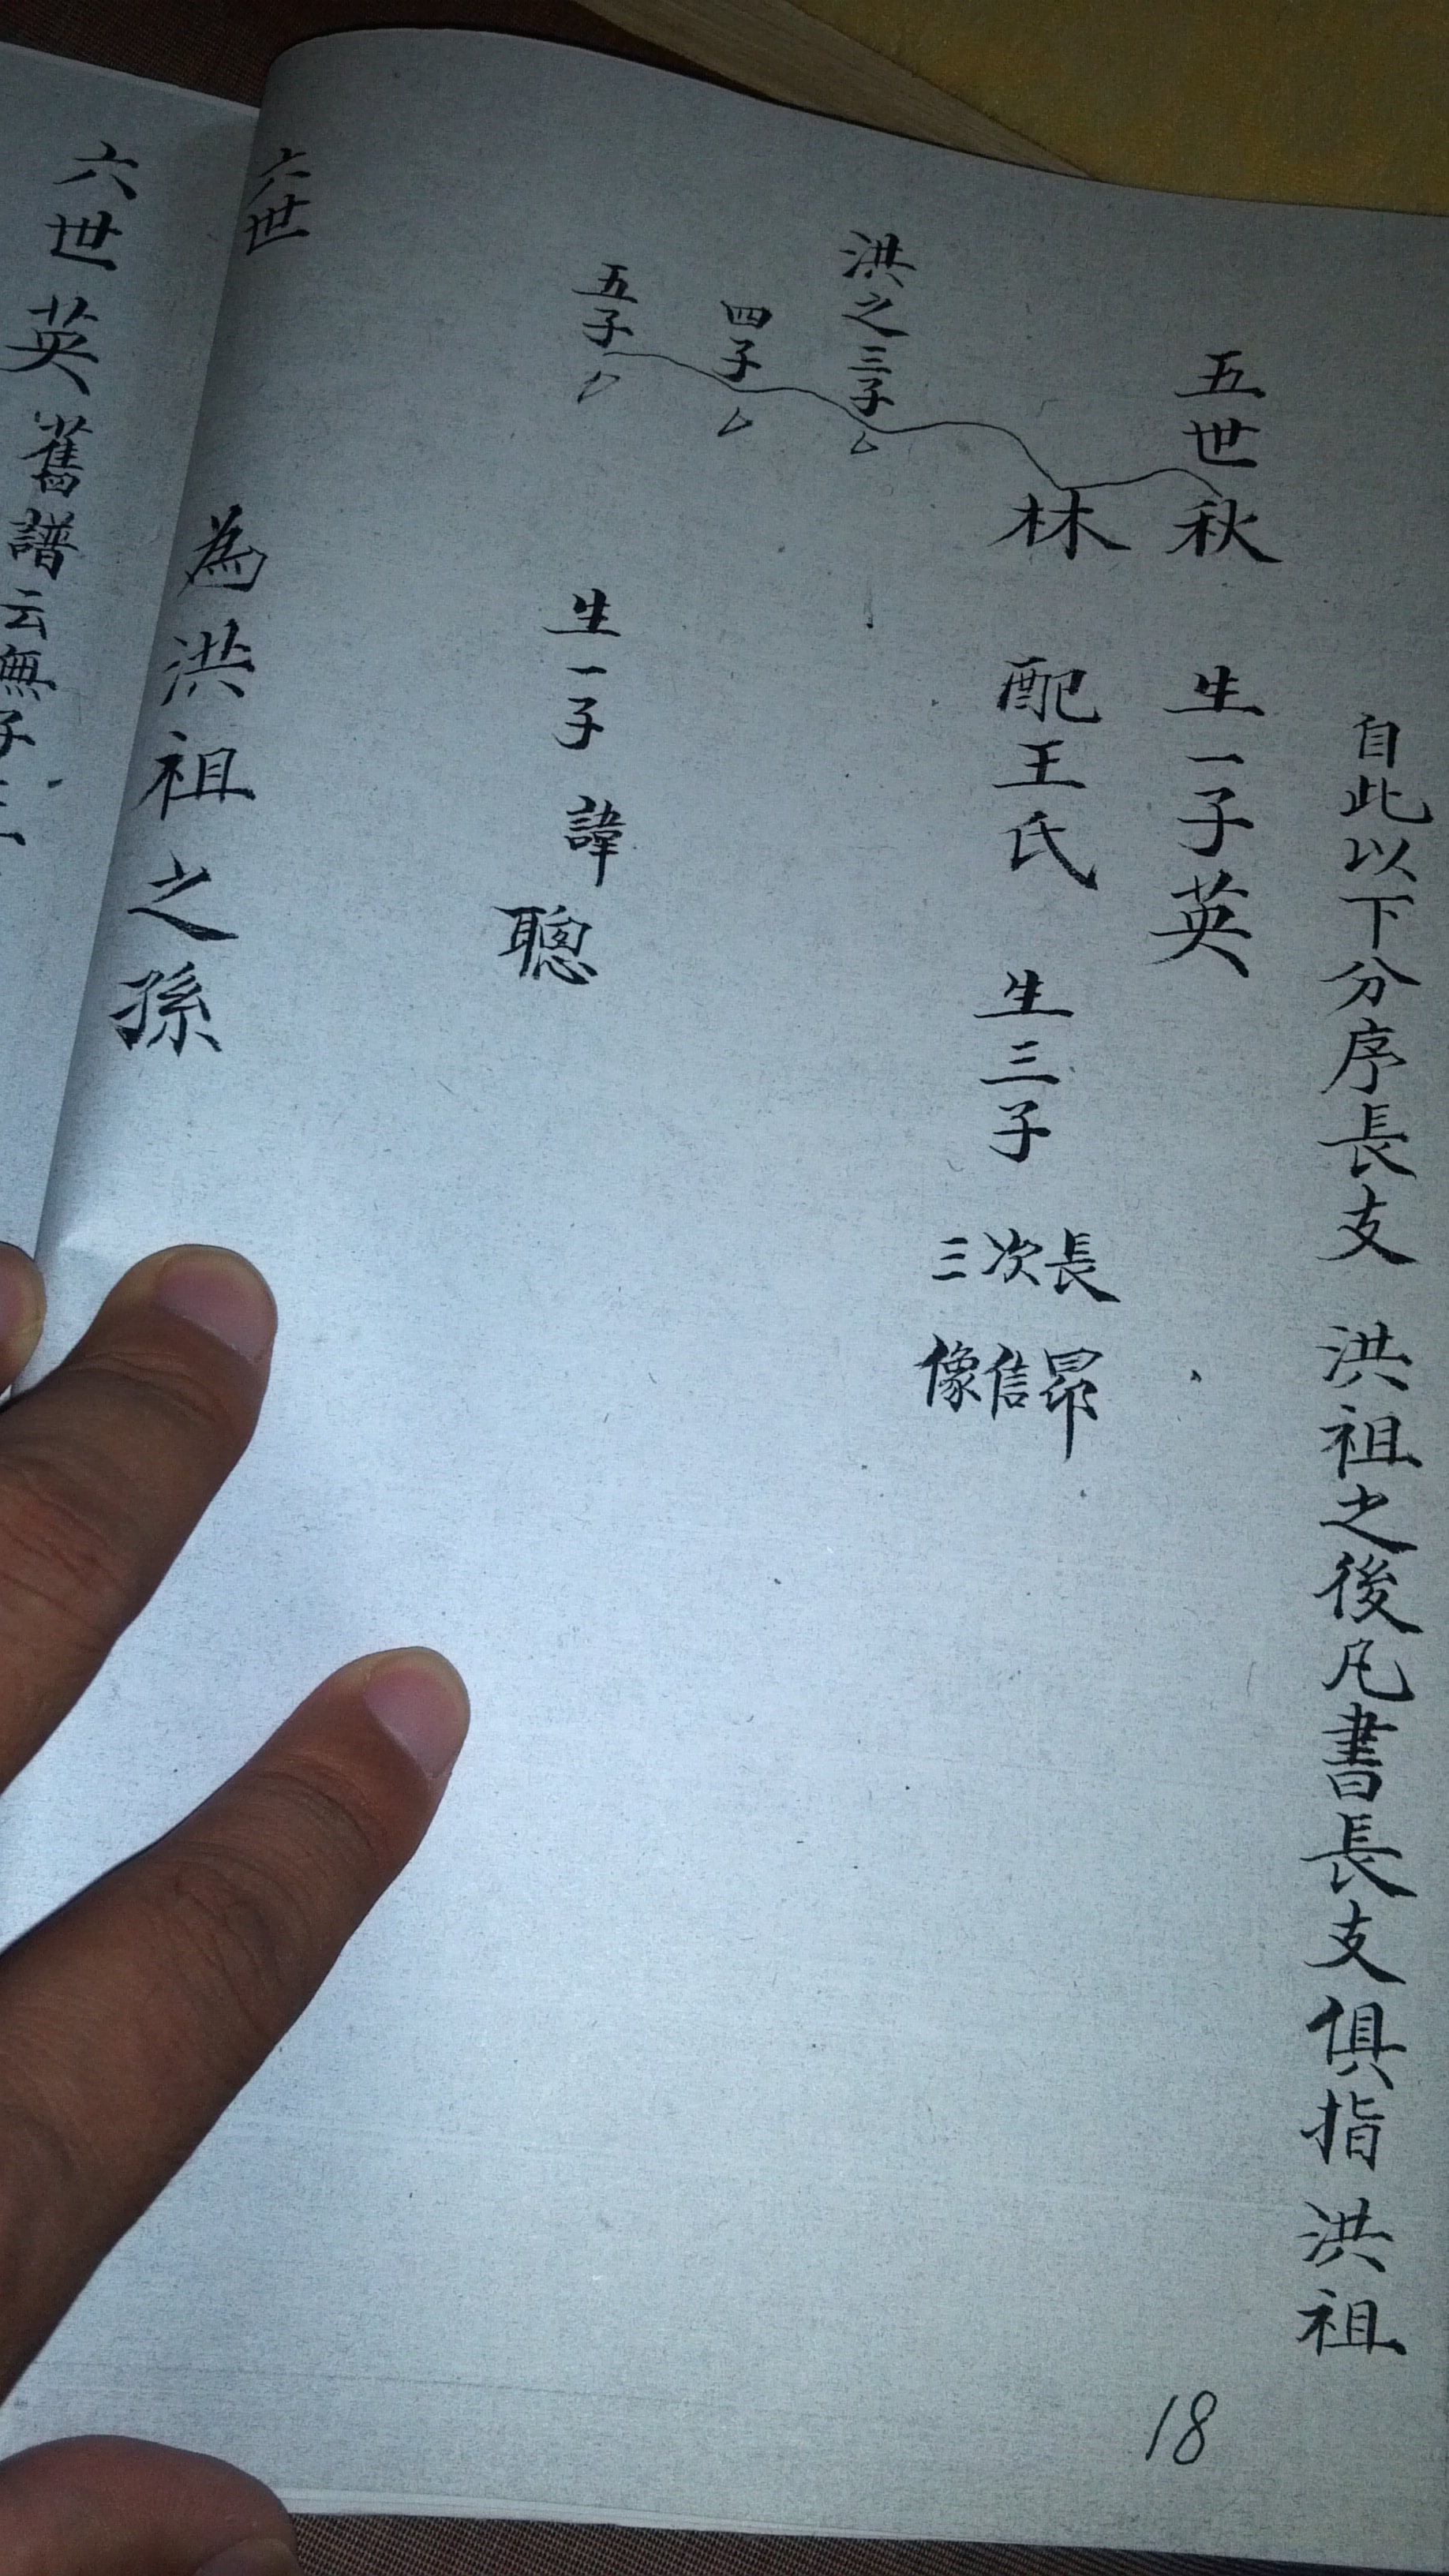 自此以下分序長支 洪祖之後凡書長支俱指 洪祖
五世秋 生一子英
林 配王氏 生三子 長昂 次信 三像
洪之三子
四子
五子 生一子 諱聰
六世 為洪祖之孫
18
六世英 舊譜云無子